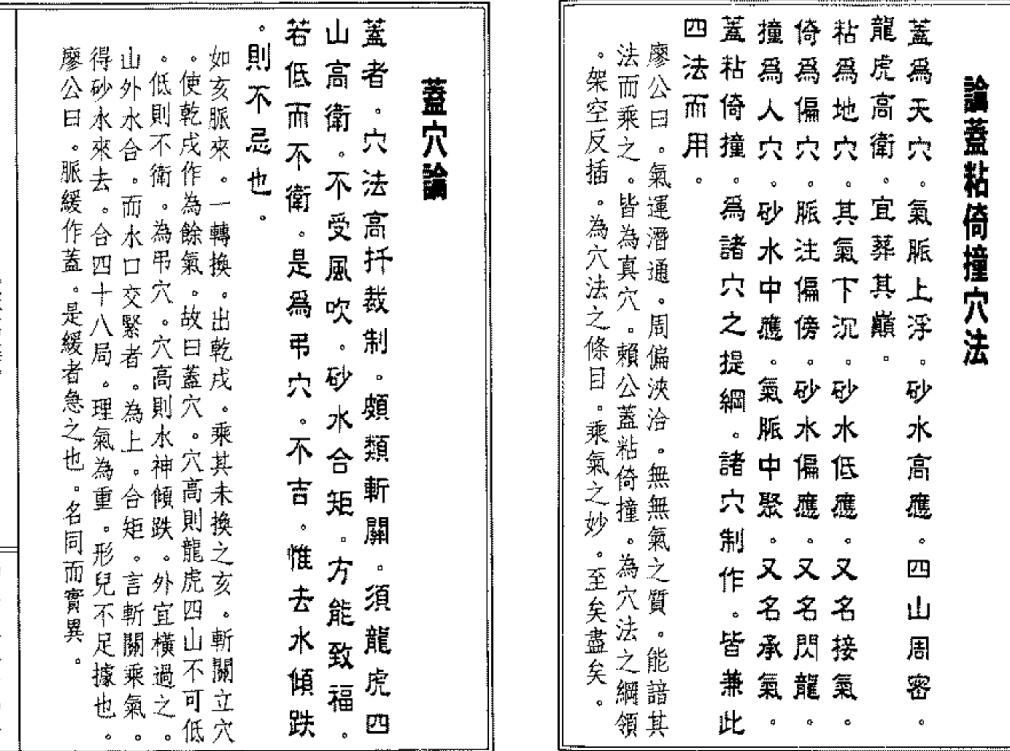 論蓋粘倚撞穴法
蓋爲天穴。氣脈上浮。砂水高應。四山周密。
龍虎高衛。宜葬其巔。
粘爲地穴。其氣下沉。砂水低應。又名接氣。
倚爲偏穴。脈注偏傍。砂水偏應。又名閃龍。
撞爲人穴。砂水中應。氣脈中聚。又名承氣。
蓋粘倚撞。爲諸穴之提綱。諸穴制作。皆兼此
四法而用。
廖公曰。氣運潛通。周偏浹洽。無無氣之質。能諳其
法而乘之。皆為真穴。賴公蓋粘倚撞。為穴法之綱領
。架空反插。為穴法之條目。乘氣之妙。至矣盡矣。
蓋穴論
蓋者。穴法高扦裁制。頗類斬關。須龍虎四
山高衛。不受風吹。砂水合矩。方能致福。
若低而不衛。是爲弔穴。不吉。惟去水傾跌
。則不忌也。
如亥脈來。一轉換。出乾戌。乘其未換之亥。斬關立穴
。使乾戌作為餘氣。故曰蓋穴。穴高則龍虎四山不可低
。低則不衛。為弔穴。穴高則水神傾跌。外宜橫過之。
山外水合。而水口交緊者。為上。合矩。言斬關乘氣。
得砂水來去。合四十八局。理氣為重。形兒不足據也。
廖公曰。脈緩作蓋。是緩者急之也。名同而實異。